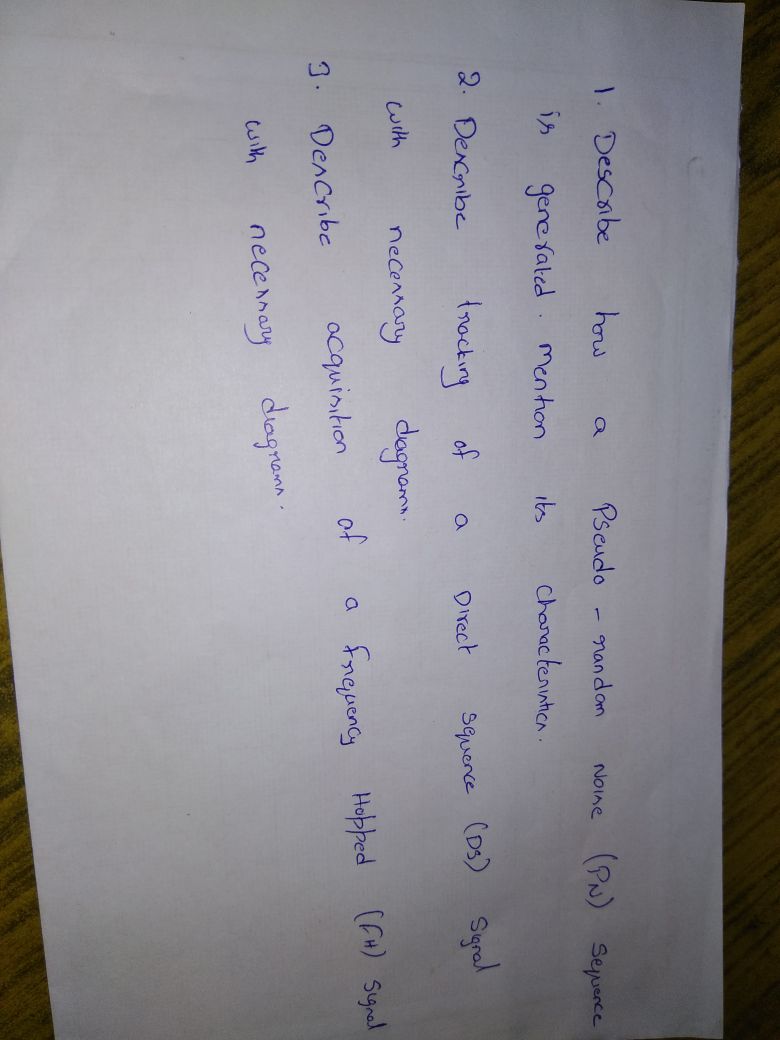 1. Describe how a Pseudo-random Noise (PN) sequence
is generated. Mention its characteristics.
2. Describe tracking of a Direct sequence (DS) Signal
with necessary diagrams.
3. Describe acquisition of a frequency Hopped (FH) Signal
with necessary diagrams.